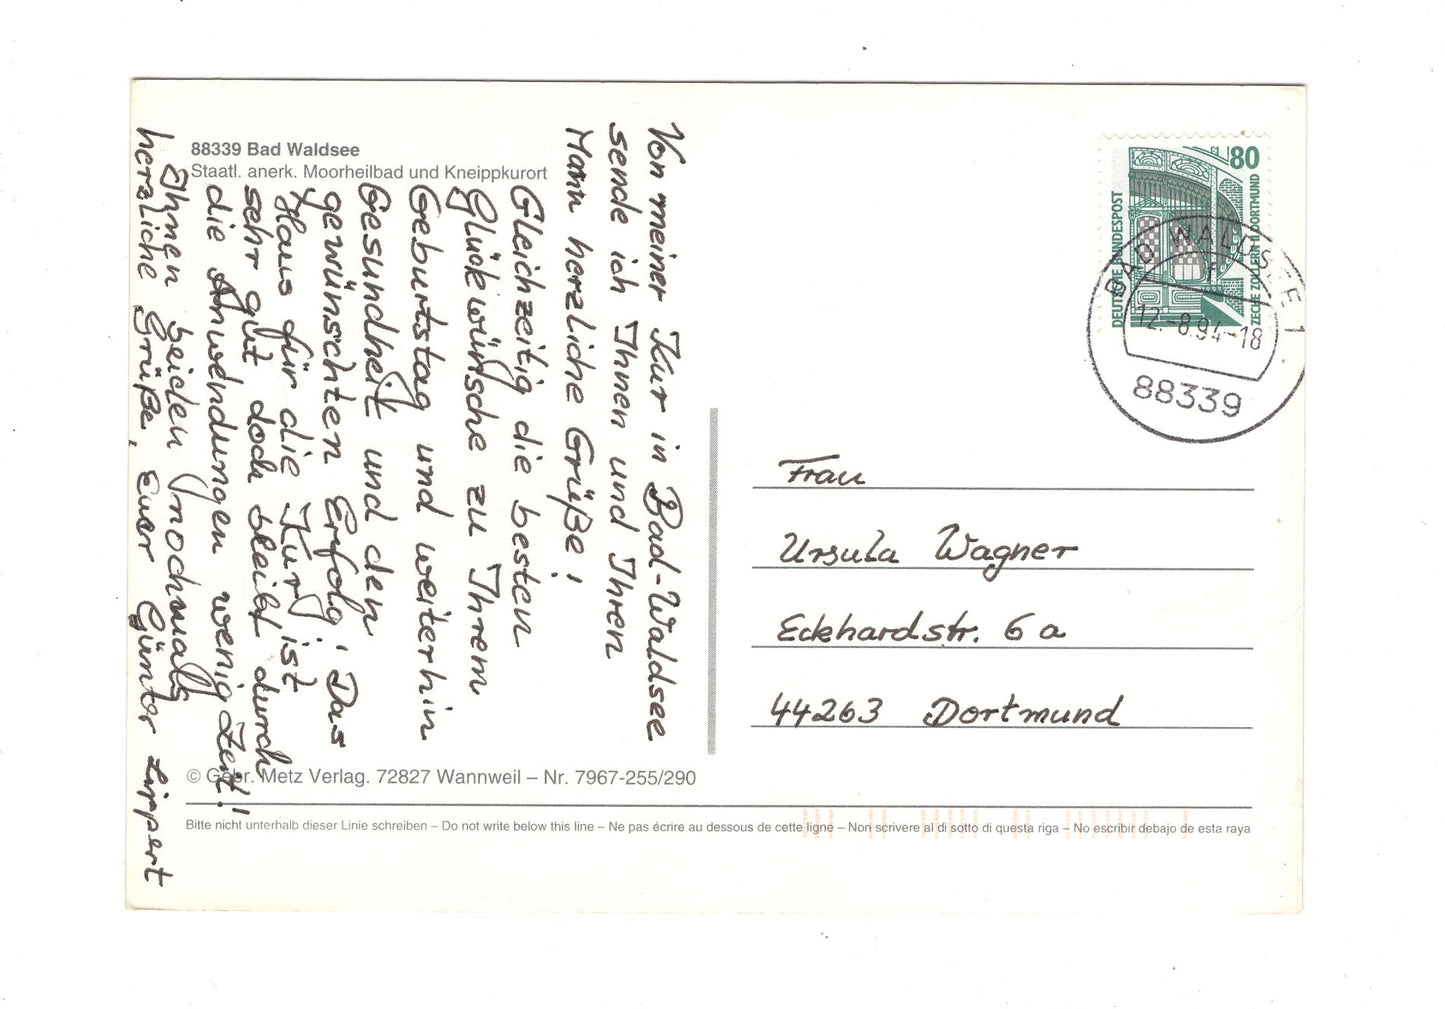 88339 Bad Waldsee
Staatl. anerk. Moorheilbad und Kneippkurort
Von meiner Kur in Bad-Waldsee
sende ich Ihnen und Ihren
Mann herzliche Grüße!
Gleichzeitig die besten
Glückwünsche zu Ihrem
Geburtstag und weiterhin
Gesundheit und den
gewünschten Erfolg! Das
Haus für die Kur ist
sehr gut doch bleibt durch
die Anwendungen wenig Zeit!
Ihnen beiden nochmals
herzliche Grüße, Euer Günter Lippert
© Gebr. Metz Verlag. 72827 Wannweil – Nr. 7967-255/290
Bitte nicht unterhalb dieser Linie schreiben – Do not write below this line – Ne pas écrire au dessous de cette ligne – Non scrivere al di sotto di questa riga – No escribir debajo de esta raya
80
DEUTSCHE BUNDESPOST
ZECHE ZOLLERN II DORTMUND
BAD WALDSEE 1
f
12.-8.94-18
88339
Frau
Ursula Wagner
Eckhardstr. 6a
44263 Dortmund